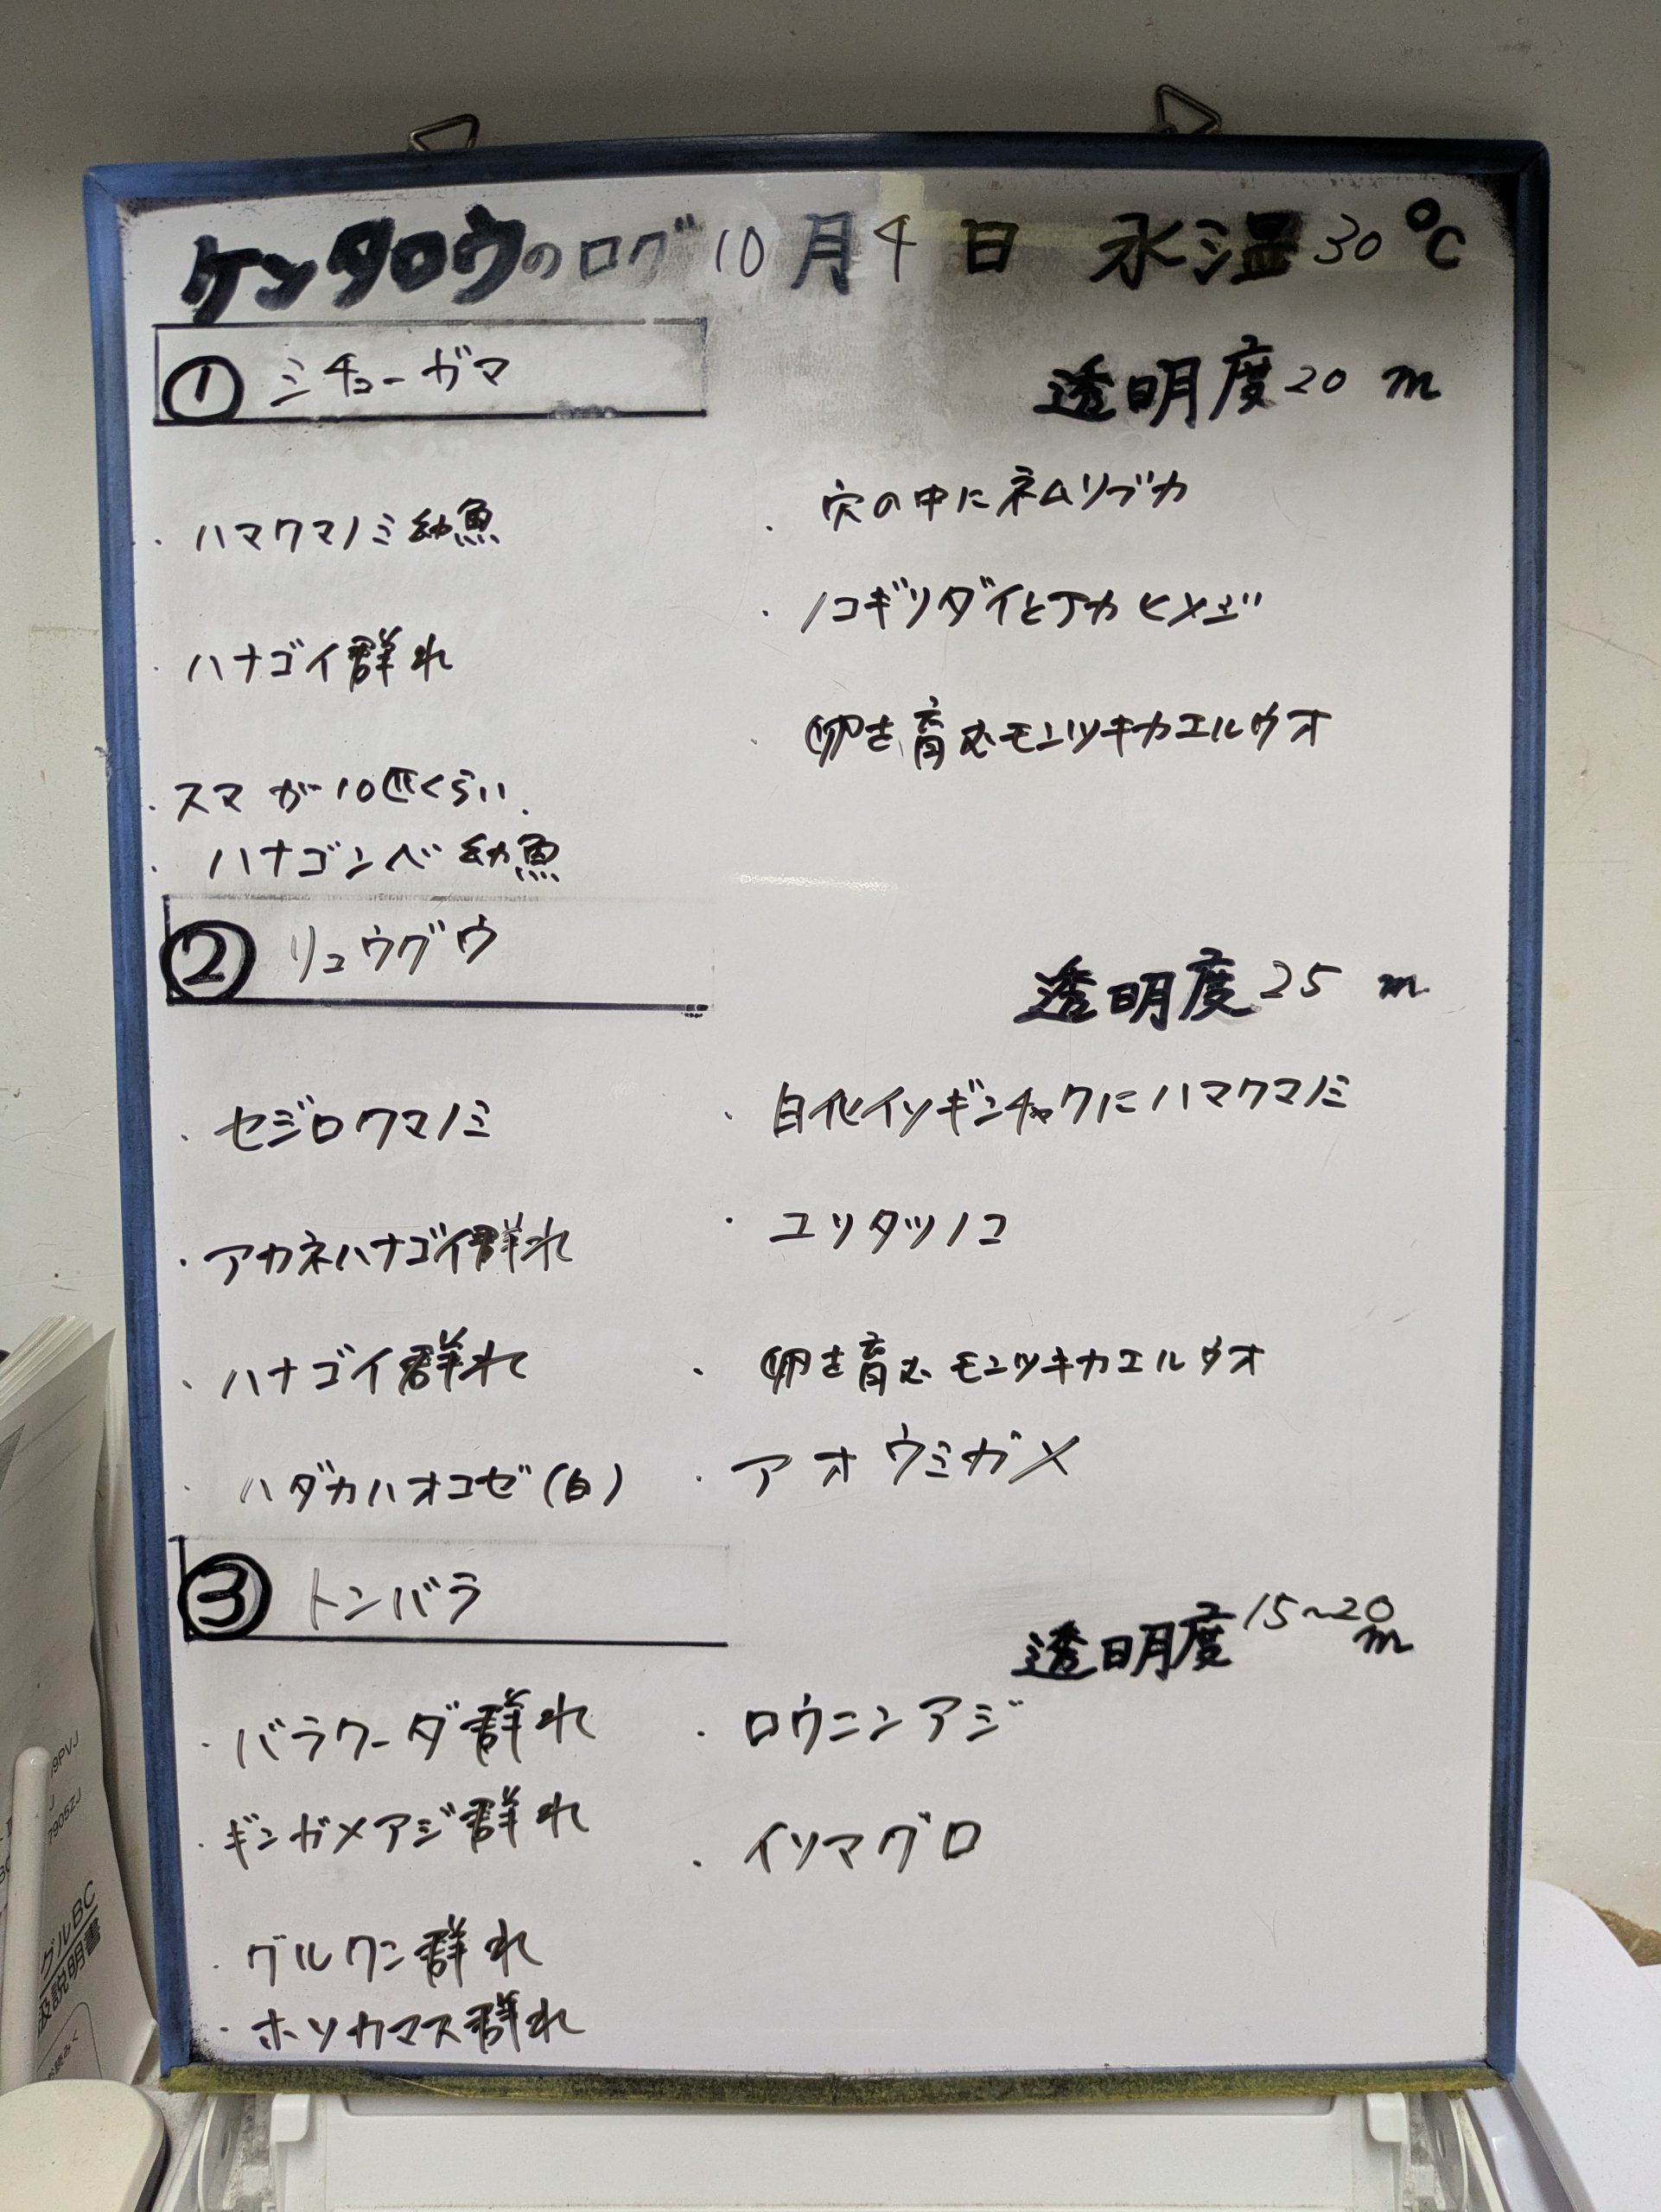 ケンタロウのログ 10月4日 水温30℃
① ミチューガマ
透明度20 m
・ハマクマノミ幼魚
・ハナゴイ群れ
・スマが10匹くらい
・ハナゴンベ幼魚
・穴の中にネムリブカ
・ノコギリダイとアカヒメジ
・卵を育むモンツキカエルウオ
② リュウグウ
透明度25 m
・セジロクマノミ
・アカネハナゴイ群れ
・ハナゴイ群れ
・ハダカハオコゼ(白)
・白化イソギンチャクにハマクマノミ
・ユリタツノコ
・卵を育むモンツキカエルウオ
・アオウミガメ
③ トンバラ
透明度15~20m
・バラクーダ群れ
・ギンガメアジ群れ
・グルクン群れ
・ホソカマス群れ
・ロウニンアジ
・イソマグロ
9PVJ
7905ZJ
グルBC
扱説明書